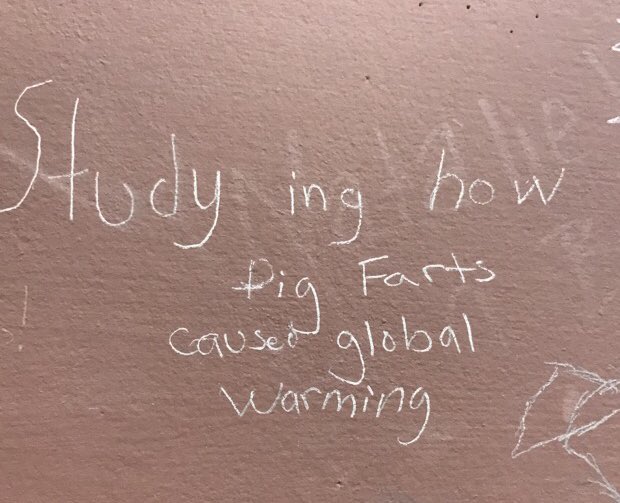 Study ing how
Pig Farts
caused global
Warming